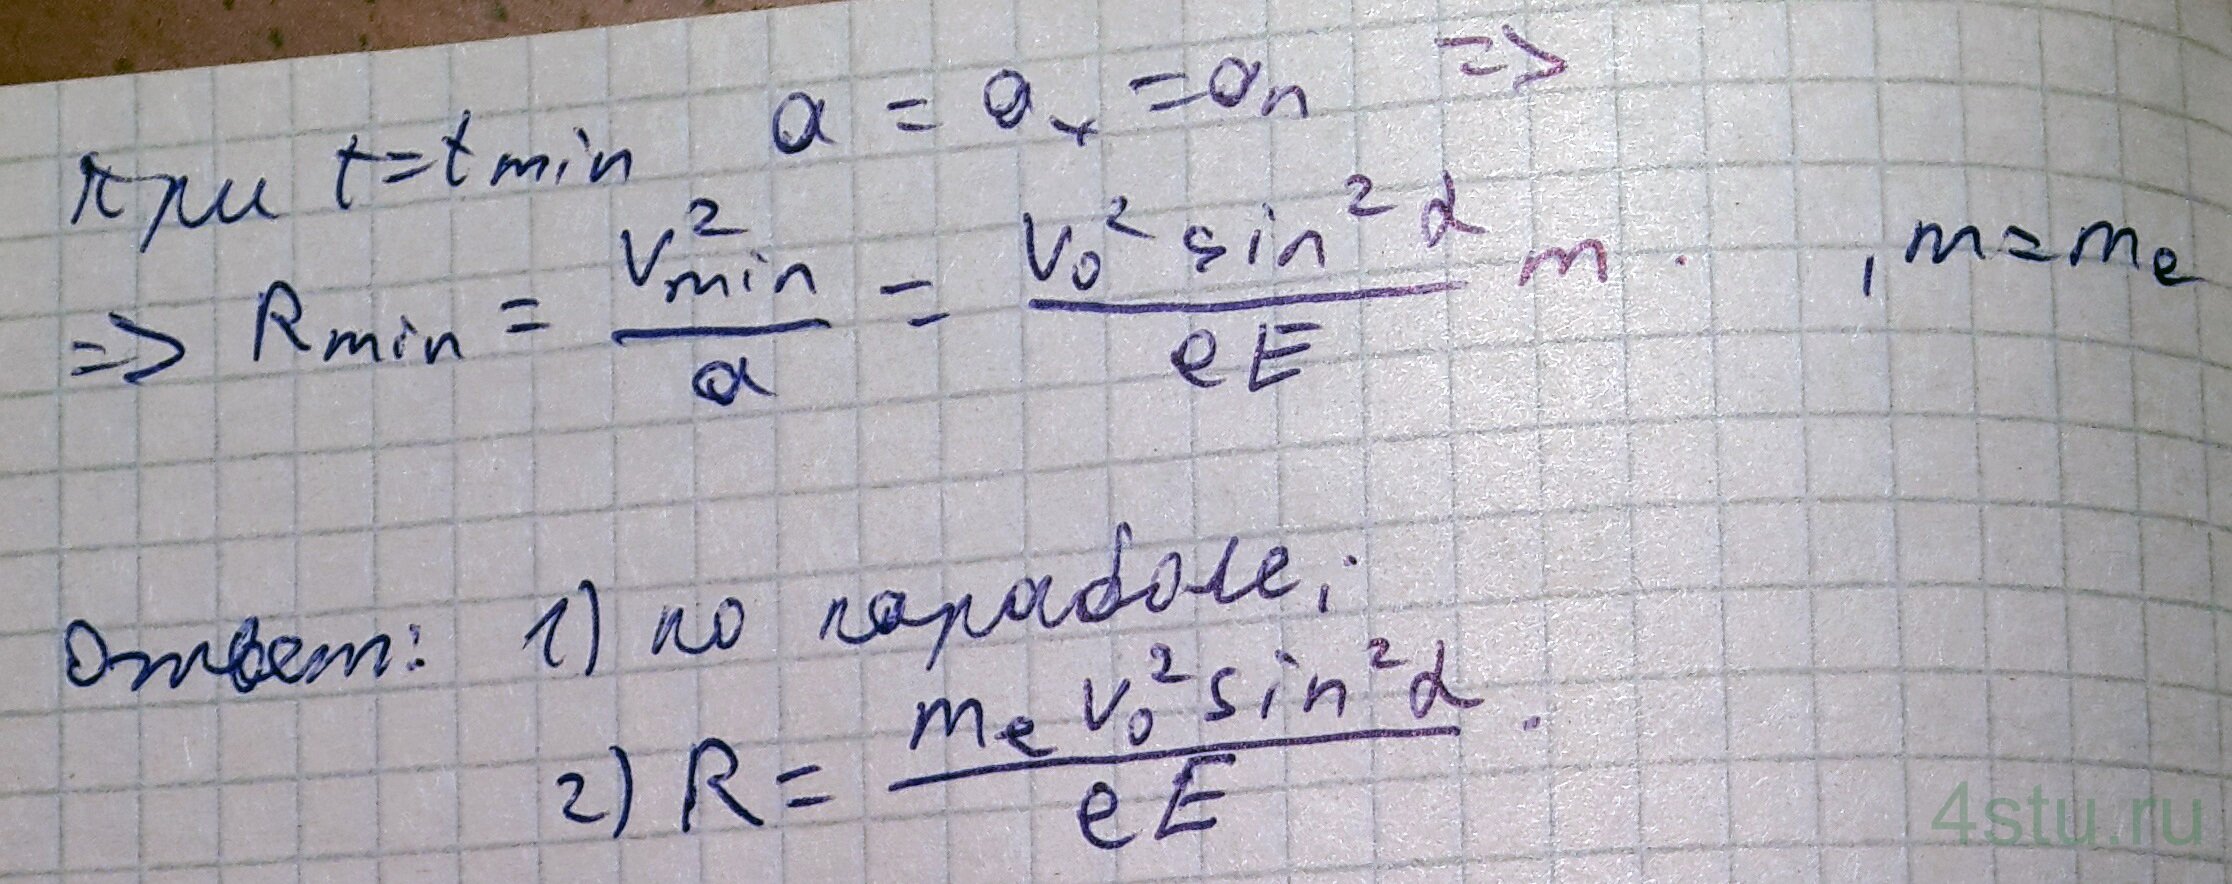 при t=t min a = a x = a n =>
=> R min = V²min / a = V₀² sin² α / eE m. , m = mₑ
Ответ: 1) по параболе;
2) R = mₑ V₀² sin² α / eE .
4stu.ru